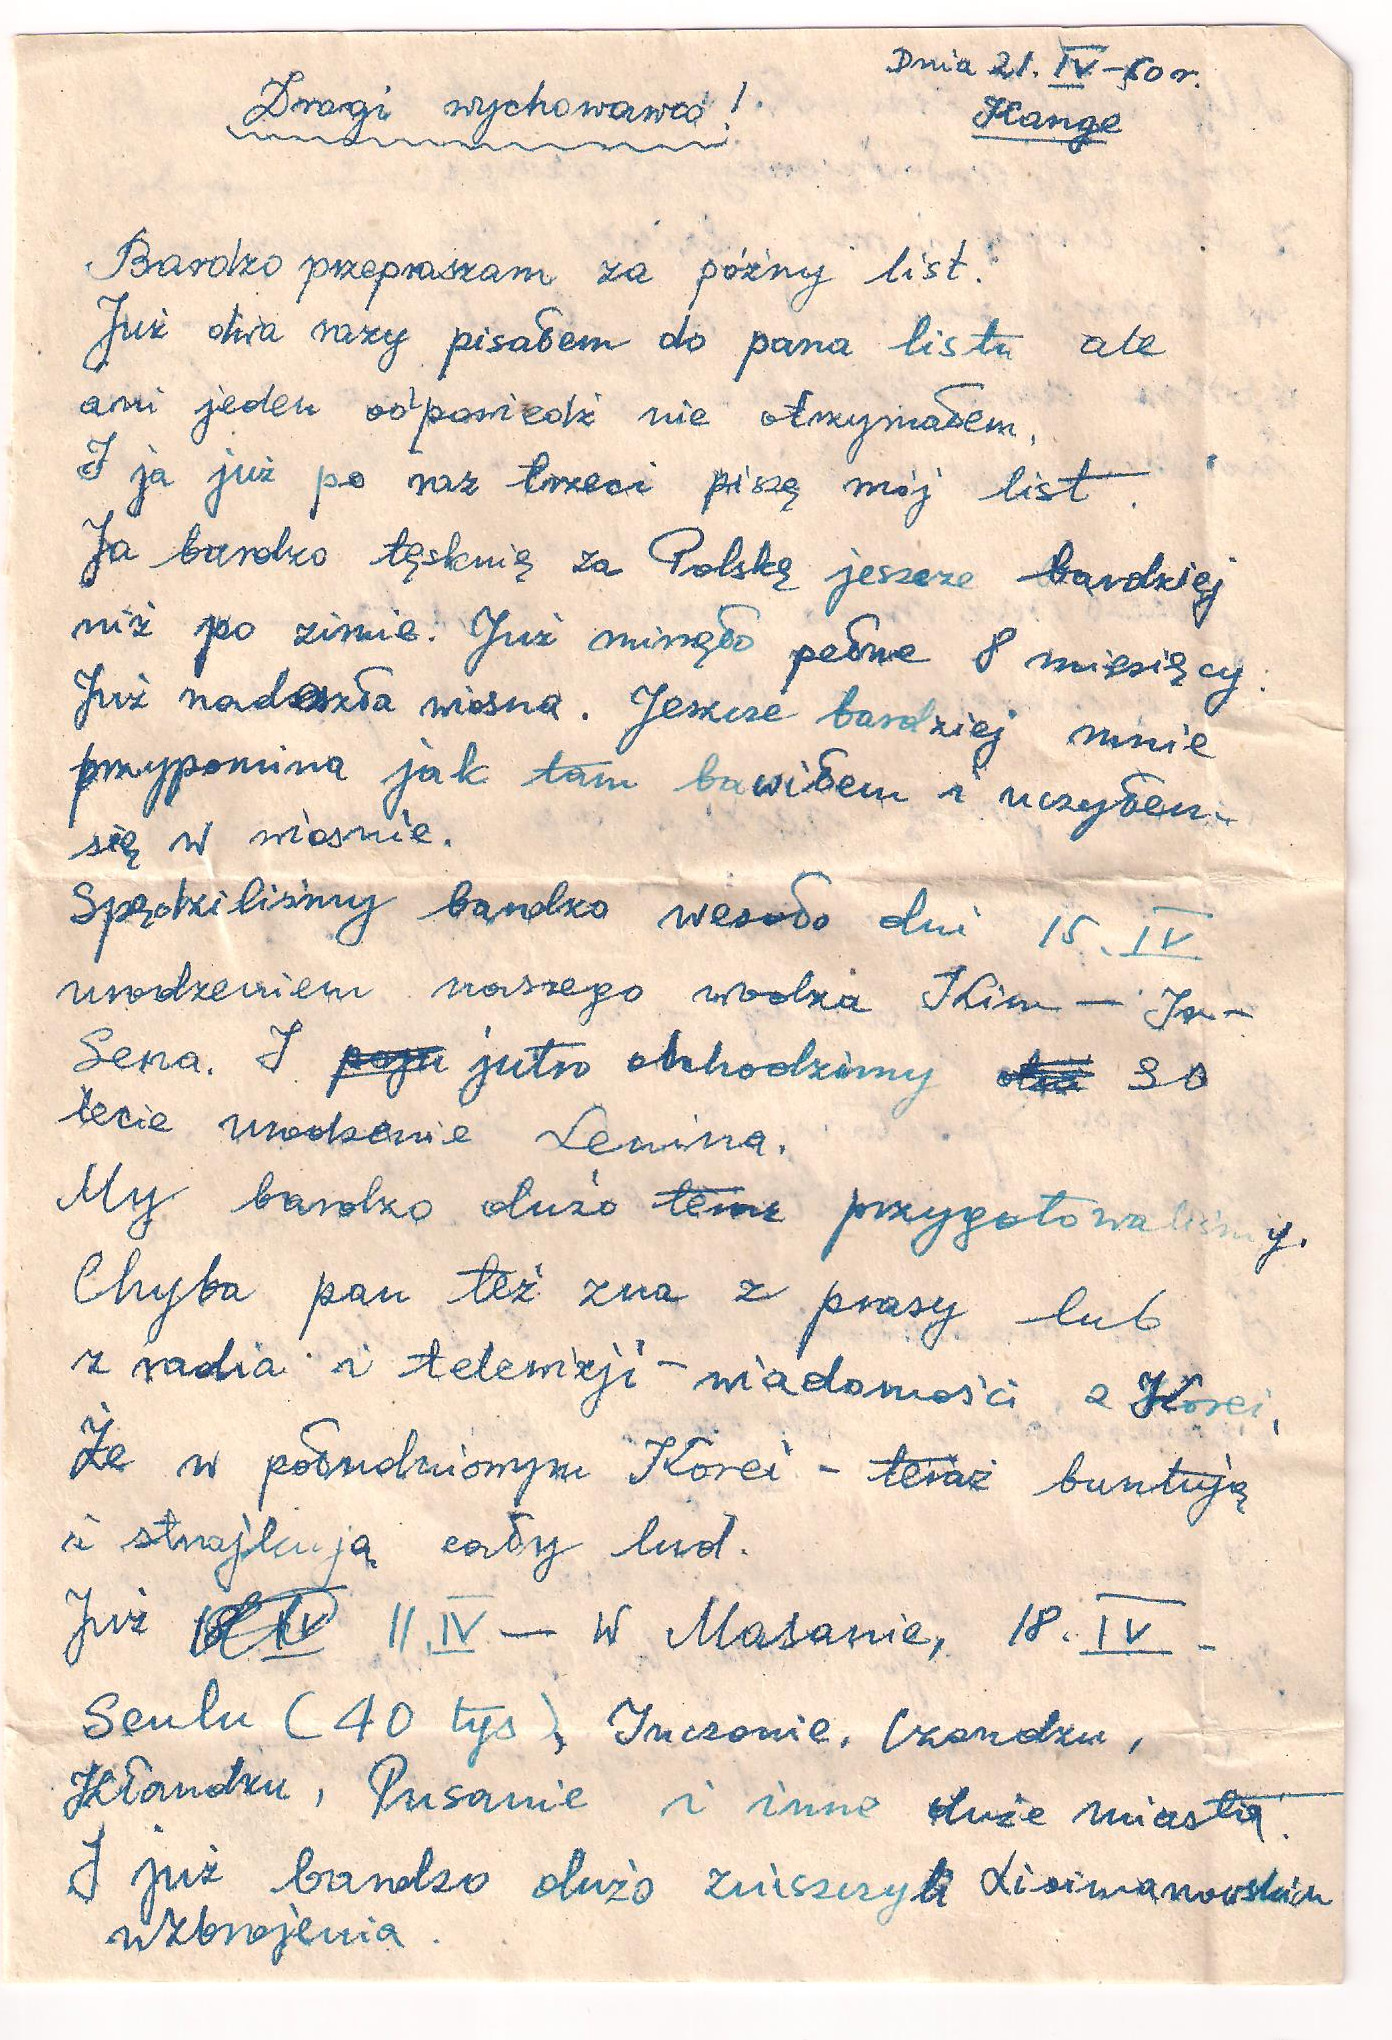 Dnia 21. IV-60 r.
Kange
Drogi wychowawco!
Bardzo przepraszam za późny list.
Już dwa razy pisałem do pana listu ale
ani jeden odpowiedź nie otrzymałem.
I ja już po raz trzeci piszę mój list.
Ja bardzo tęsknię za Polską jeszcze bardziej
niż po zimie. Już minęło pełne 8 miesięcy.
Już nadeszła wiosna. Jeszcze bardziej mnie
przypomina jak tam bawiłem i uczyłem
się w wiosnie.
Spędziliśmy bardzo wesoło dni 15. IV
urodzeniem naszego wodza Kim - Ir -
Sena. I jutro obchodzimy 90
lecie urodzenie Lenina.
My bardzo dużo przygotowaliśmy.
Chyba pan też zna z prasy lub
z radia i telewizji - wiadomości z Korei,
Że w południowym Korei - teraz buntują
i strajkują cały lud.
Już 11 IV - W Masanie, 18. IV -
Seulu (40 tys), Inczonie, Czondzu,
Kłandzu, Pusanie i inne duże miasta.
I już bardzo dużo zniszczyli Lisimanowskich
uzbrojenia.